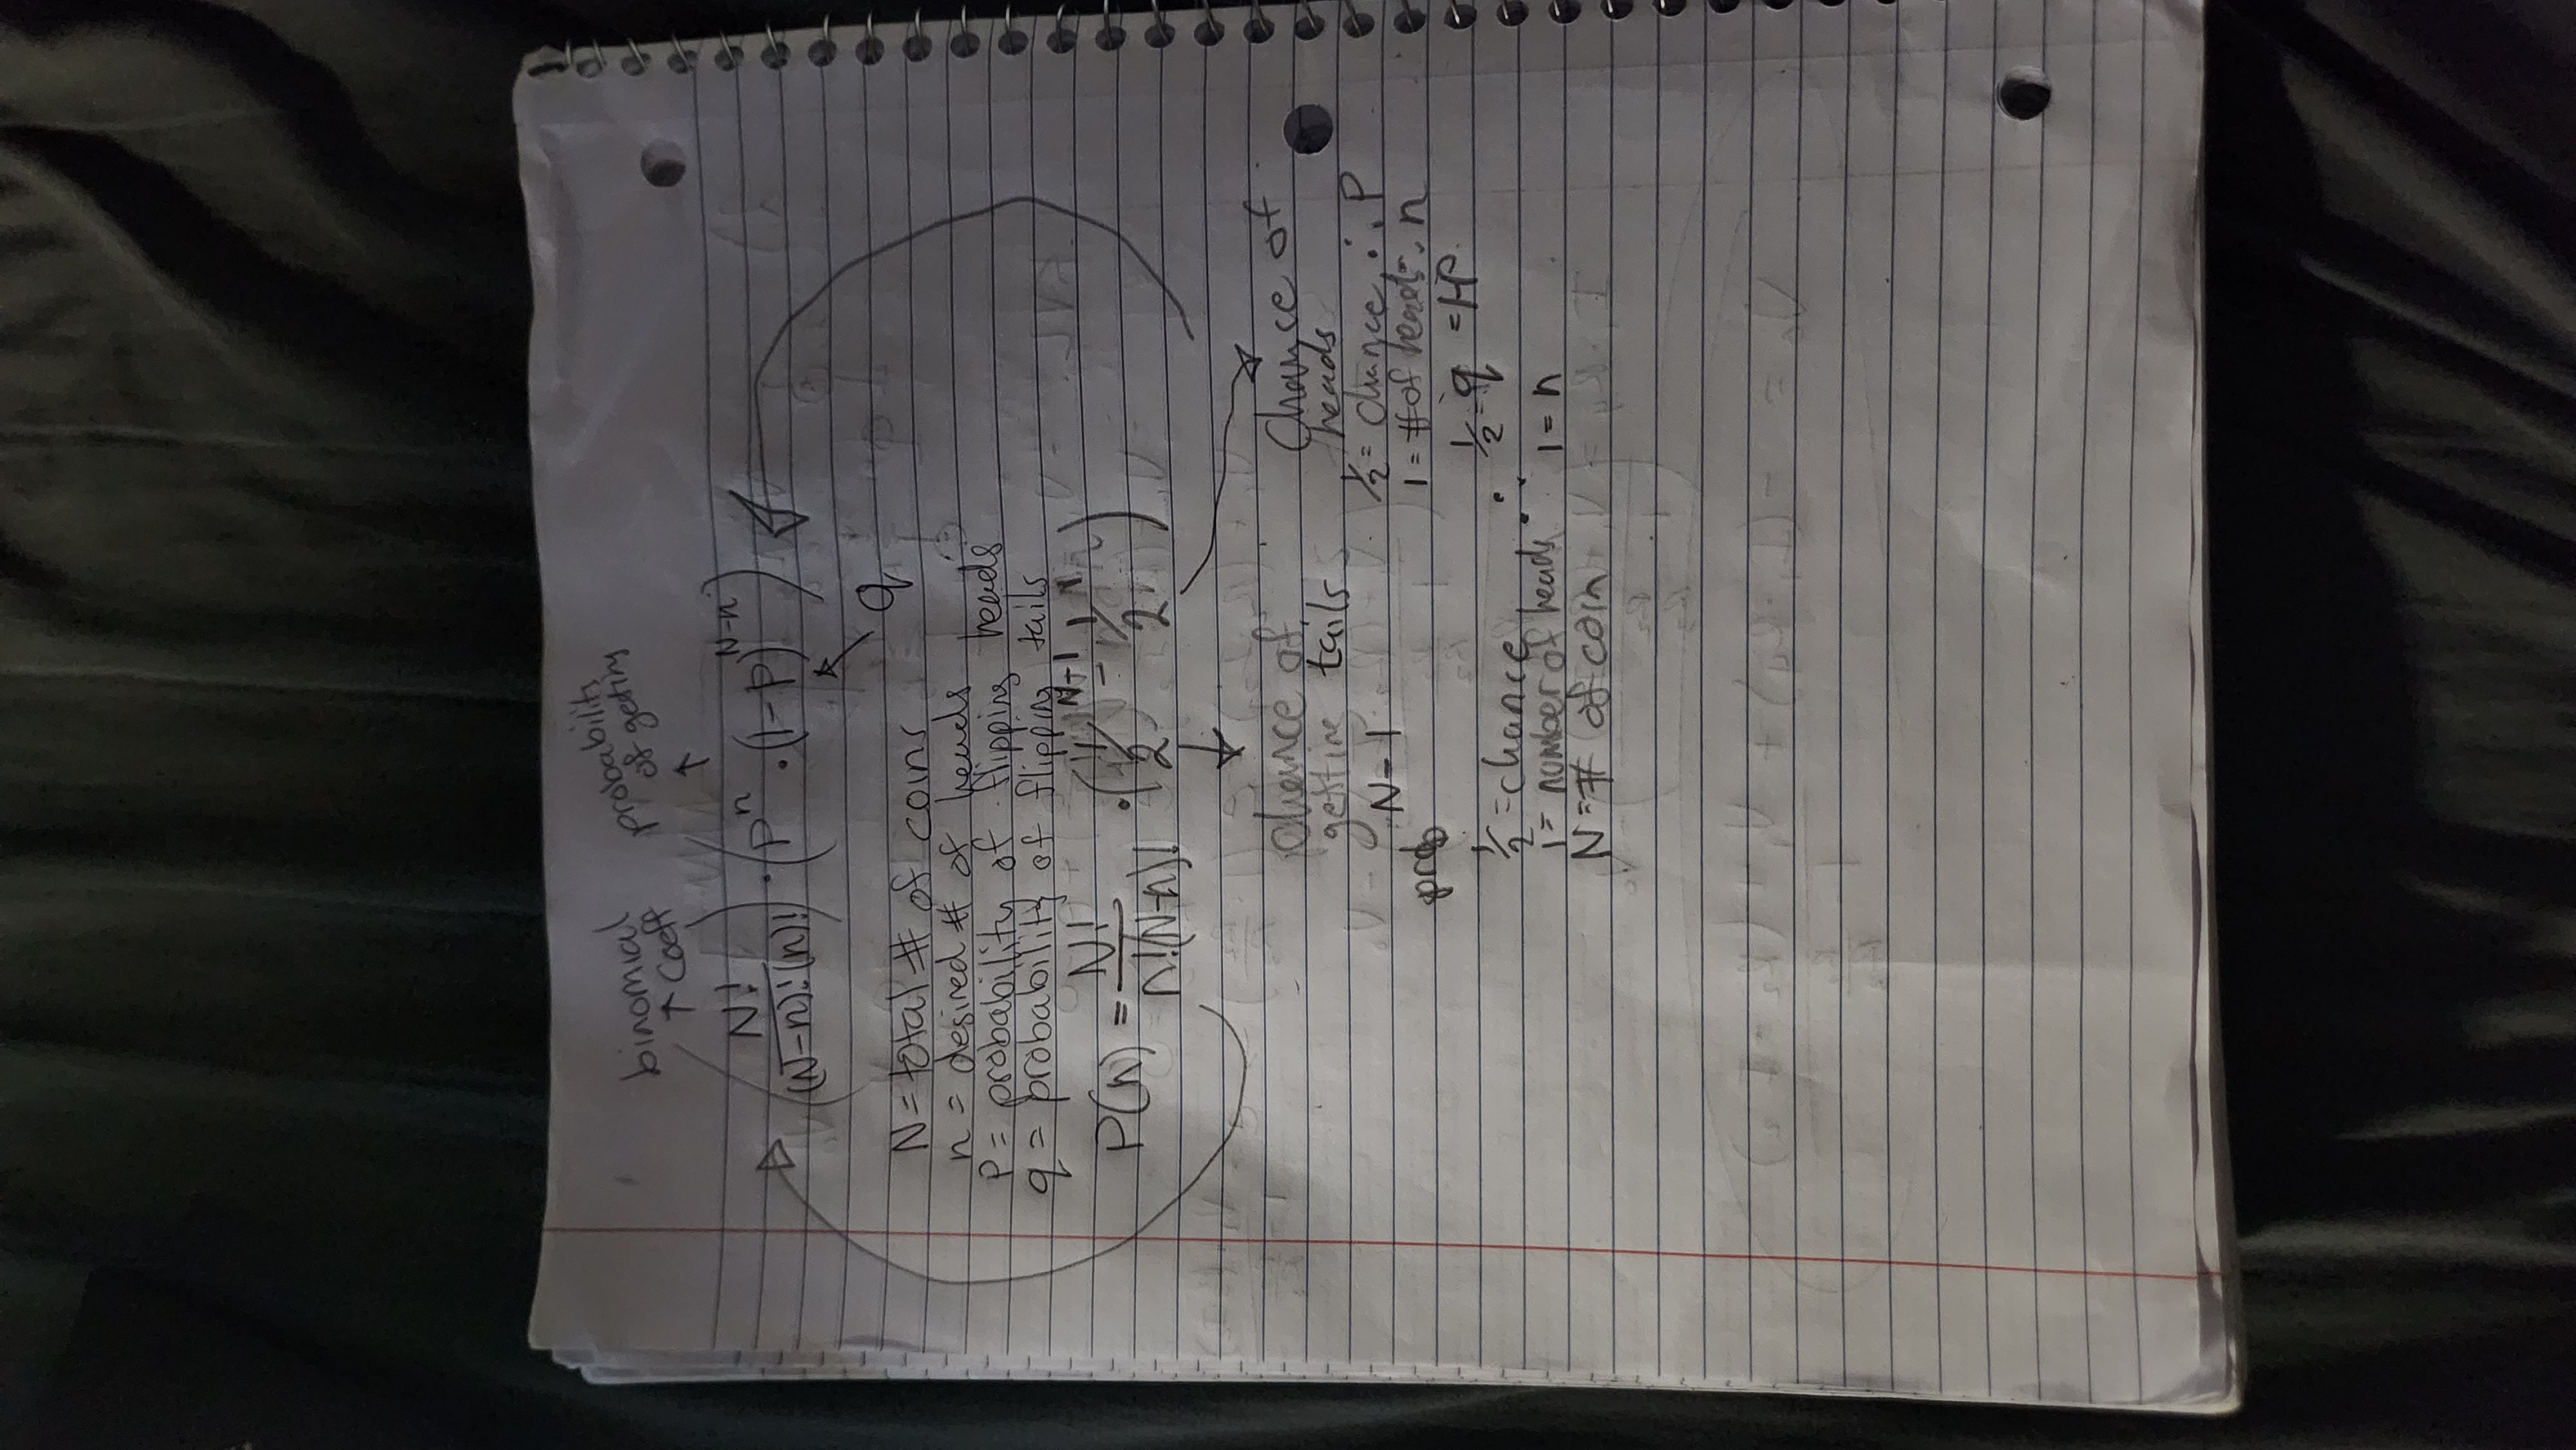 binomial
↑ Coeff
probability
of getting
↑
(N! / (N-n)!(n)!) · (P^n · (1-P)^(N-n))
q
N = total # of coins
n = desired # of heads
P = probability of flipping heads
q = probability of flipping tails
P(n) = N! / n!(N-n)! · (1/2^(N-1) - 1/2^1)
Chance of
getting tails
N-1
prob
1/2 = chance
1 = number of heads
N = # of coin
Chance of
heads
1/2 = chance ∴ P
1 = # of heads ∴ n
∴ 1/2 = q = 1-P
1 = n